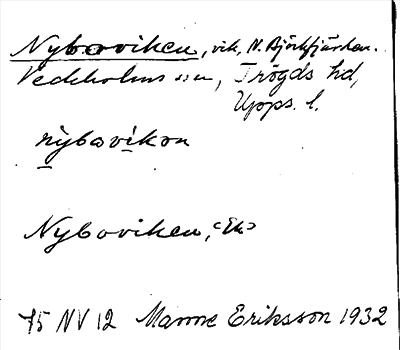 Nyboviken, vik, N. Björkfjärden.
Veckholms sn, Trögds hd,
Upps. l.
nybovikən
Nyboviken, (Ek)
75 NV 12 Manne Eriksson 1932